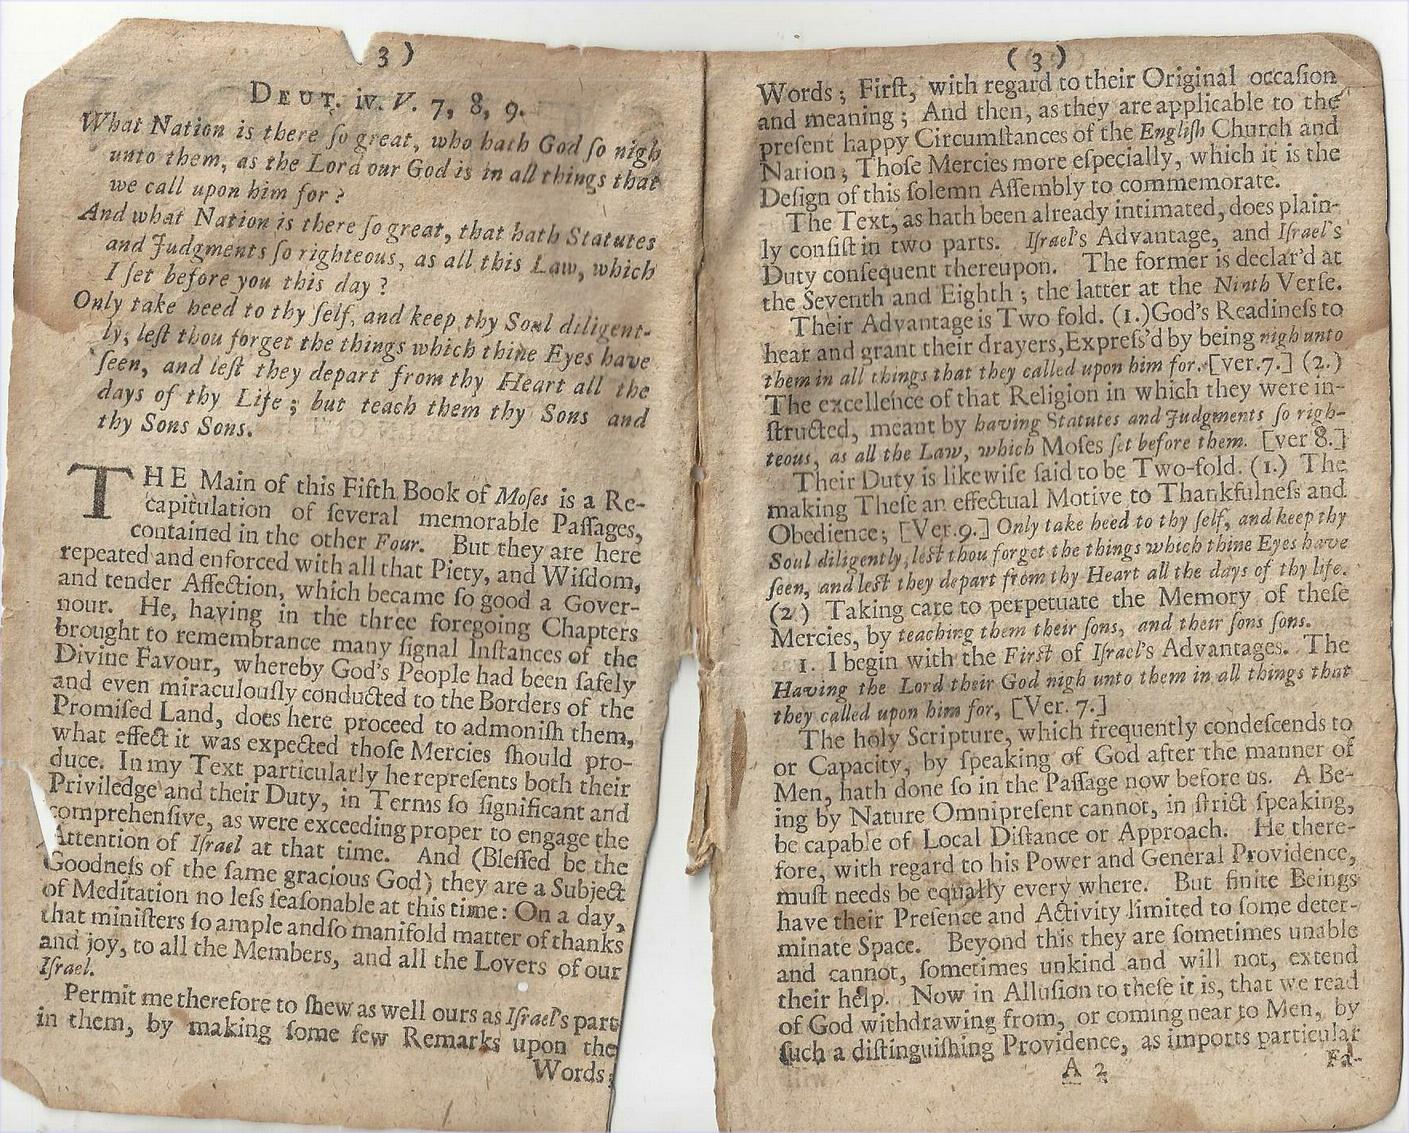 3 )
DEUT. iv. V. 7, 8, 9.
What Nation is there ſo great, who hath God ſo nigh
unto them, as the Lord our God is in all things that
we call upon him for ?
And what Nation is there ſo great, that hath Statutes
and Judgments ſo righteous, as all this Law, which
I ſet before you this day ?
Only take heed to thy ſelf, and keep thy Soul diligent-
ly, leſt thou forget the things which thine Eyes have
ſeen, and leſt they depart from thy Heart all the
days of thy Life ; but teach them thy Sons and
thy Sons Sons.
THE Main of this Fifth Book of Moſes is a Re-
capitulation of ſeveral memorable Paſſages,
contained in the other Four. But they are here
repeated and enforced with all that Piety, and Wiſdom,
and tender Affection, which became ſo good a Gover-
nour. He, having in the three foregoing Chapters
brought to remembrance many ſignal Inſtances of the
Divine Favour, whereby God's People had been ſafely
and even miraculouſly conducted to the Borders of the
Promiſed Land, does here proceed to admoniſh them,
what effect it was expected thoſe Mercies ſhould pro-
duce. In my Text particularly he repreſents both their
Priviledge and their Duty, in Terms ſo ſignificant and
comprehenſive, as were exceeding proper to engage the
Attention of Iſrael at that time. And (Bleſſed be the
Goodneſs of the ſame gracious God) they are a Subject
of Meditation no leſs ſeaſonable at this time: On a day,
that miniſters ſo ample and ſo manifold matter of thanks
and joy, to all the Members, and all the Lovers of our
Iſrael.
Permit me therefore to ſhew as well ours as Iſrael's part
in them, by making ſome few Remarks upon the
Words;
( 3 )
Words ; Firſt, with regard to their Original occaſion
and meaning ; And then, as they are applicable to the
preſent happy Circumſtances of the Engliſh Church and
Nation ; Thoſe Mercies more eſpecially, which it is the
Deſign of this ſolemn Aſſembly to commemorate.
The Text, as hath been already intimated, does plain-
ly conſiſt in two parts. Iſrael's Advantage, and Iſrael's
Duty conſequent thereupon. The former is declar'd at
the Seventh and Eighth ; the latter at the Ninth Verſe.
Their Advantage is Two fold. (1.)God's Readineſs to
hear and grant their drayers,Expreſs'd by being nigh unto
them in all things that they called upon him for. [ver.7.] (2.)
The excellence of that Religion in which they were in-
ſtructed, meant by having Statutes and Judgments ſo righ-
teous, as all the Law, which Moſes ſet before them. [ver 8.]
Their Duty is likewiſe ſaid to be Two-fold. (1.) The
making Theſe an effectual Motive to Thankfulneſs and
Obedience; [Ver.9.] Only take heed to thy ſelf, and keep thy
Soul diligently, leſt thou forget the things which thine Eyes have
ſeen, and leſt they depart from thy Heart all the days of thy life.
(2.) Taking care to perpetuate the Memory of theſe
Mercies, by teaching them their ſons, and their ſons ſons.
1. I begin with the Firſt of Iſrael's Advantages. The
Having the Lord their God nigh unto them in all things that
they called upon him for, [Ver. 7.]
The holy Scripture, which frequently condeſcends to
or Capacity, by ſpeaking of God after the manner of
Men, hath done ſo in the Paſſage now before us. A Be-
ing by Nature Omnipreſent cannot, in ſtrict ſpeaking,
be capable of Local Diſtance or Approach. He there-
fore, with regard to his Power and General Providence,
muſt needs be equally every where. But finite Beings
have their Preſence and Activity limited to ſome deter-
minate Space. Beyond this they are ſometimes unable
and cannot, ſometimes unkind and will not, extend
their help. Now in Alluſion to theſe it is, that we read
of God withdrawing from, or coming near to Men, by
ſuch a diſtinguiſhing Providence, as imports particular
A 2 Fa-